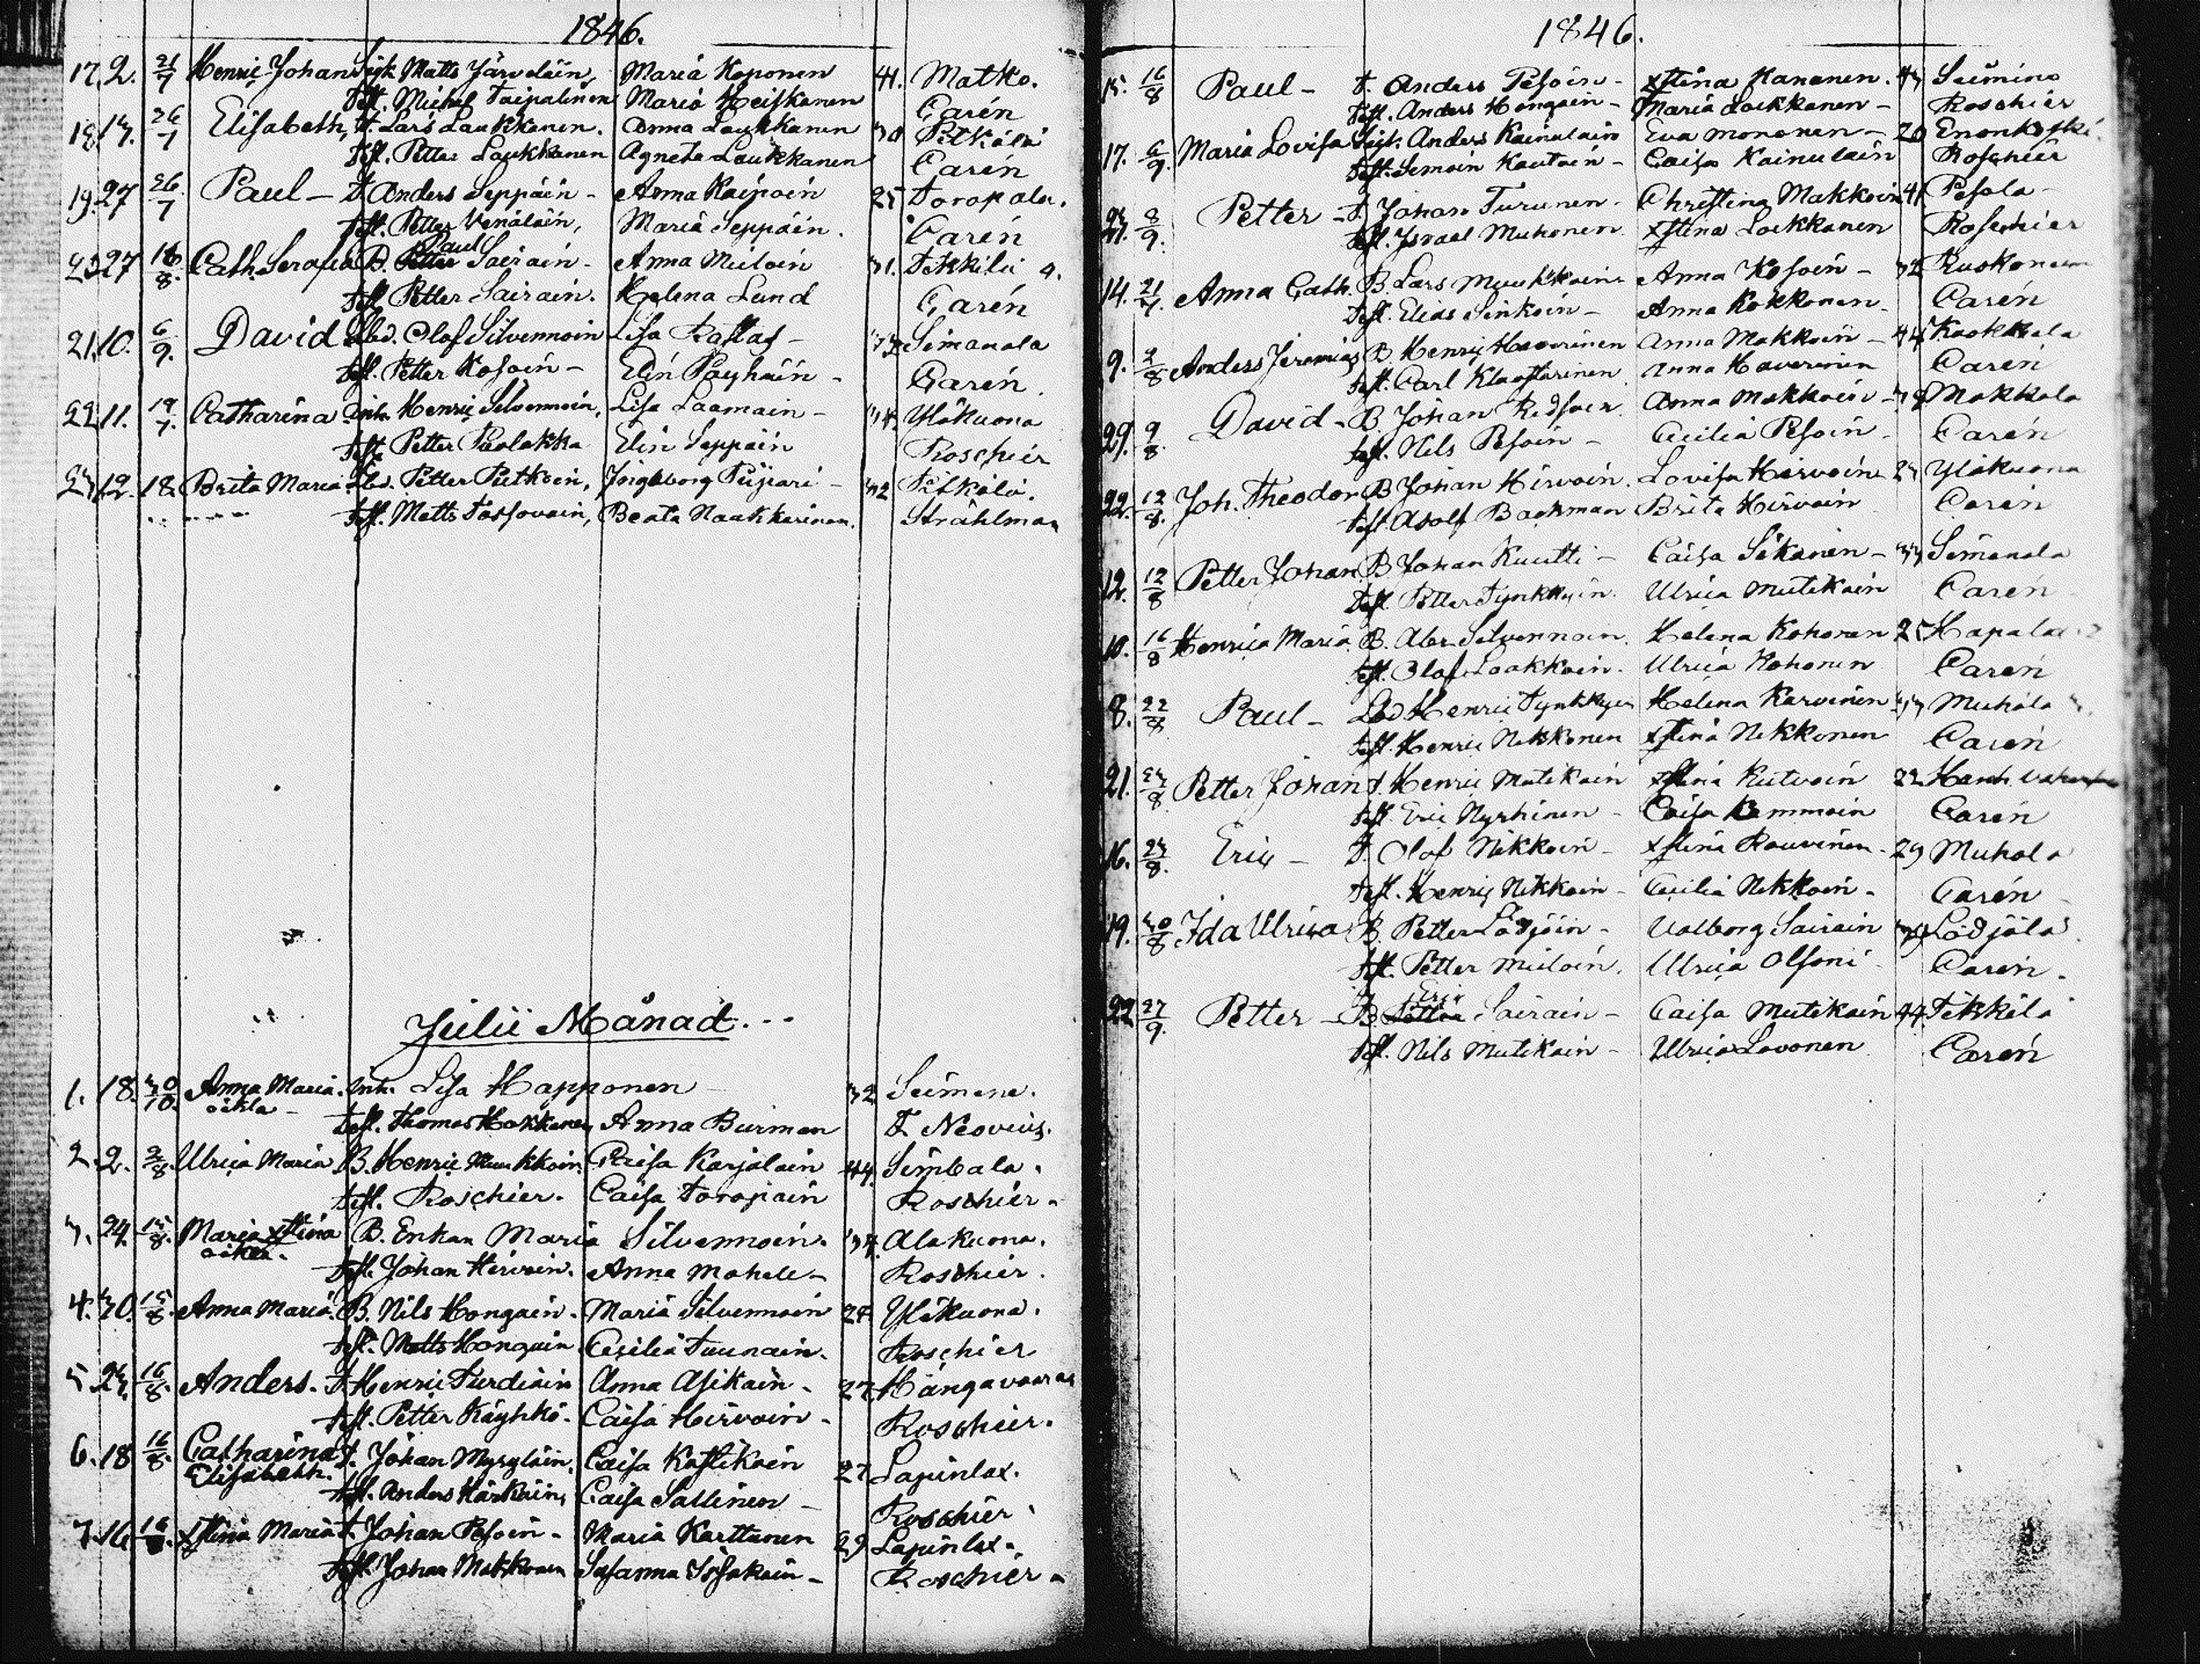 1846.
17. 2. 21/7 Henric Johan Sytn. Matts Järveläin, Maria Koponen 41. Matko.
Test. Michel Taipalinen Maria Heiskanen Carén
18. 26/7 Elisabeth, T. Lars Laukkanen. Anna Laukkanen Pitkälä
Test. Petter Laukkanen Agneta Laukkanen Carén
19. 27 26/7 Paul – T. Anders Seppäin – Anna Kaipain 25 Toropala.
Test. Petter Venäläin, Maria Seppäin. Carén
Paul
27 16/8. Cath. Serafia B. Petter Sairain – Anna Muiloin 31. Tikkilä 4.
Test. Petter Sairain. Helena Lund Carén
21. 10. 6/9. David Lbd. Olof Silvennoin Lisa Rastas – Simanala
Test. Petter Kosoin – Elin Pöyhäin – Carén
22. 11. 19/7. Catharina Inh. Henric Silvennoin, Lisa Laamain – 34. Ylikuona
Test. Petter Puolakka Elin Seppäin Roschier
12. 18. Brita Maria Lbd. Petter Putkoin, Ingeborg Piipari – 32 Pitkälä.
Test. Matts Tossavain, Beata Naukkarinen. Stråhlman
Julii Månad.
1. 18. 30/10. Anna Maria. Inh. Lisa Happonen 32 Suimene.
oäkta – Test. Thomas Makkonen Anna Burman T. Neovius.
2. 2. 2/8 Ulrica Maria B. Henric Muukkoin. Caisa Karjalain 44. Simbala.
Test. Roschier. Caisa Toropain Roschier –
3. 24. 15/8. Maria Xstina B. Enkan Maria Silvennoin. 34. Alakuona.
oäkta. Test. Johan Hirvoin. Anna Mahele – Roschier.
4. 30. 15/8. Anna Maria. B. Nils Hongain. Maria Silvennoin 24. Ylikuona.
Test. Matts Hongain Cecilia Tuunain. Roschier
5. 23. 16/8. Anders. T. Henric Turdiain Anna Asikain – 27. Hängavaaras
Test. Petter Käyhkö. Caisa Hirvoin – Roschier.
6. 18 16/8. Catharina T. Johan Myryläin, Caisa Kostikain 27 Lapinlax.
Elisabeth. Test. Anders Härkäin, Caisa Sallinen – Roschier.
7. 16. 16/8. Xstina Maria T. Johan Pesoin – Maria Karttunen 29 Lapinlax.
Test. Johan Makkonen Susanna Issakain – Roschier –
1846.
15. 16/8 Paul – T. Anders Pesoin – Xstina Kananen. 43 Suimino
Test. Anders Hongain – Maria Laukkanen – Roschier
17. 6/9. Maria Lovisa Sytn. Anders Kainulain Eva Mononen – 20 Enonkoski
Test. Simoin Kautoin – Caisa Kainulain Roschier
8/9. Petter – T. Johan Turunen. Christina Makkoin 41 Pesola –
Test. Israel Muhonen Xstina Laukkanen Roschier
14. 21/7. Anna Cath. B. Lars Muukkoin Anna Kosoin – 32
Test. Elias Sinkoin – Anna Kokkonen Carén
9. 2/8 Anders Jeremias B. Henric Haverinen Anna Makkoin – 44 Kaokkala
Test. Carl Klaostarinen Anna Haverinen Carén
29. 9/8. David – B. Johan Anna Makkoin – 38 Makkala
Test. Nils Pesoin – Cecilia Pesoin – Carén
22. 12/8. Joh. Theodor B. Johan Hirvoin. Lovisa Hirvoin 23 Ylikuona
Test. Adolf Backman Brita Hirvoin Carén
12. 12/8 Petter Johan B. Johan Kuutti – Caisa Sikanen – 33 Simanala
Test. Petter Tynkkyin. Ulrica Mutikain Carén
10. 16/8 Henrica Maria B. Abr. Silvennoin. Helena Kohonen 25 Hapala
Test. Olof Laakkoin. Ulrica Kohonen Carén
8. 22/8 Paul – Lbd Henric Tynkkyin Helena Karvinen 33 Muhola
Test. Henric Nikkonen Xstina Nikkonen Carén
21. 23/8 Petter Johan T. Henric Mutikain Xstina Kutvoin 22
Test. Eric Nyrhinen – Caisa Kammoin Carén
16. 23/8. Eric – T. Olof Nikkoin – Xstina Rouvinen – 29 Muhola
Test. Henric Nikkoin – Cecilia Nikkoin – Carén –
19. 30/8 Ida Ulrica B. Petter Lödjöin – Valborg Sairain Lödjölä.
Test. Petter Muiloin. Ulrica Olsoni Carén.
Eric
22 27/9. Petter – B. Petter Sairain – Caisa Mutikain 44. Tikkälä
Test. Nils Mutikain – Ulrica Lavonen Carén